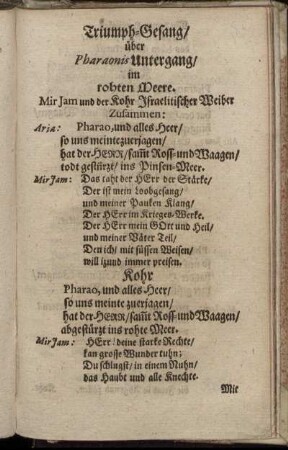 Triumph-Gesang/
über
Pharaonis Untergang/
im
rohten Meere.
Mir Jam und der Kohr Israelitischer Weiber
Zusammen:
Arja: Pharao, und alles Heer/
so uns meinte zuerjagen/
hat der HERR/ samt Ross- und Waagen/
todt gestürzt/ ins Pinsen-Meer.
Mir Jam: Das taht der HErr der Stärke/
Der ist mein Loobgesang/
und meiner Pauken Klang/
Der HErr im Krieges-Werke.
Der HErr mein GOtt und Heil/
und meiner Väter Teil/
Den ich/ mit süssen Weisen/
will izund immer preisen.
Kohr
Pharao, und alles Heer/
so uns meinte zuerjagen/
hat der HERR/ samt Ross- und Waagen/
abgestürzt ins rohte Meer.
Mir Jam: HErr/ deine starke Rechte/
kan grosse Wunder tuhn;
Du schlugst/ in einem Nuhn/
das Haubt und alle Knechte.
Mit